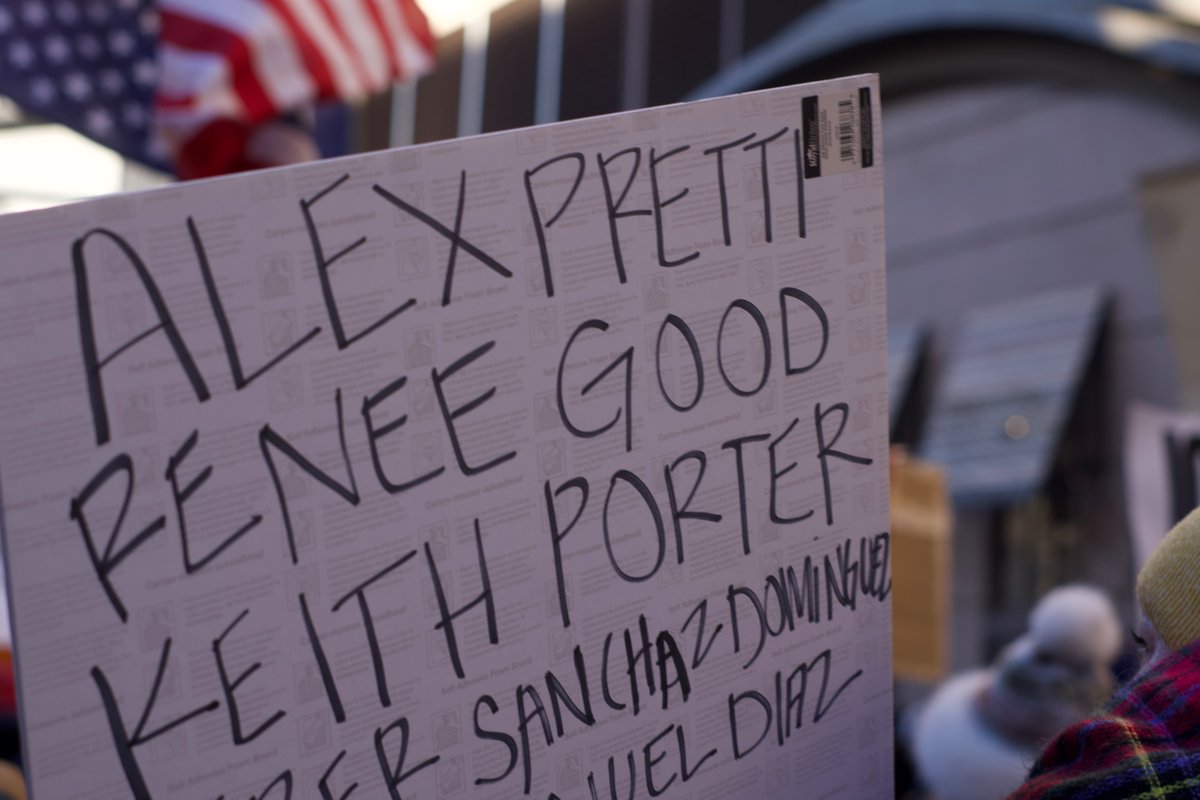 ALEX PRETTI
RENEE GOOD
KEITH PORTER
SANCHAZ DOMINGUEZ
DIAZ